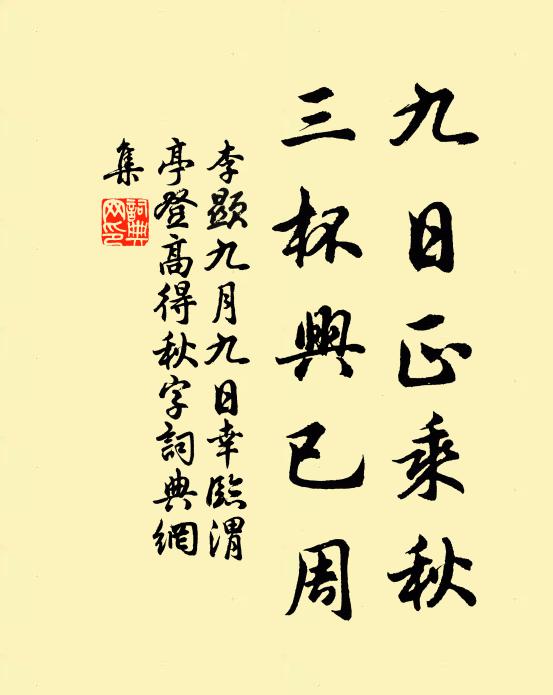 九日正乘秋
三杯興已周
李顯九月九日幸臨渭
亭登高得秋字詞典網
集
詞典
网印